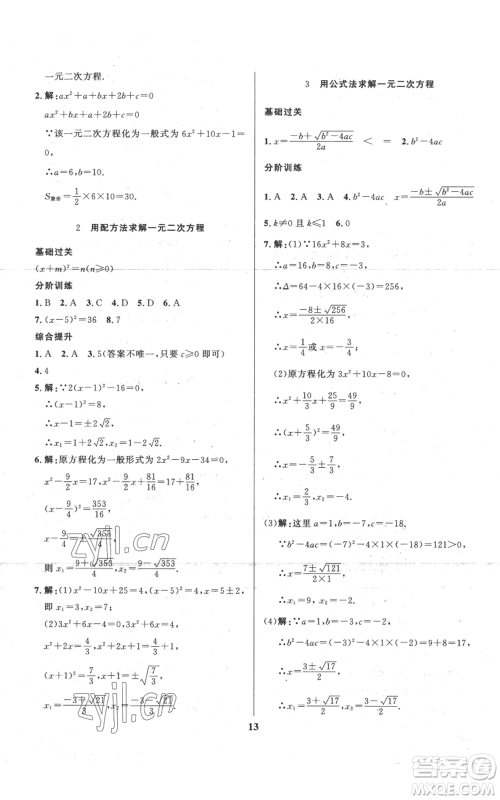 一元二次方程.
2.解:ax²+a+bx+2b+c=0
ax²+bx+a+2b+c=0
∵该一元二次方程化为一般式6x²+10x-1=0
∴a=6,b=10.
S菱形=1/2×6×10=30.
2 用配方法求解一元二次方程
基础过关
(x+m)²=n(n≥0)
分阶训练
1.B 2.A 3.B 4.C 5.D 6.A
7.(x-5)²=36 8.7
综合提升
1.A 2.A 3.5(答案不唯一,只要c≥0即可)
4.4
5.解:∵2(x-1)²-16=0,
∴(x-1)²=8,
∴x-1=±2√2,
∴x₁=1+2√2,x₂=1-2√2.
6.解:原方程化为一般形式2x²-9x-34=0,
x²-9/2x=17,x²-9/2x+81/16=17+81/16
(x-9/4)²=353/16
x-9/4=±√353/4
则x₁=9+√353/4,x₂=9-√353/4.
7.解:(1)x²-10x+25=4,(x-5)²=4,x-5=±2,
即x₁=3,x₂=7;
(2)3x²+6x-4=0,
x²+2x=4/3,x²+2x+1=4/3+1,
(x+1)²=7/3,x+1=±√7/3,
x₁=-3+√21/3,x₂=-3-√21/3.
3 用公式法求解一元二次方程
基础过关
1.x=-b+√b²-4ac/2a < = 2.b²-4ac
分阶训练
1.A 2.A 3.D 4.b²-4ac x=-b±√b²-4ac/2a
5.k≠0且k≤1 6.0
7.解:(1)∵16x²+8x-3=0,
∴a=16,b=8,c=-3,
∴Δ=64-4×16×(-3)=256,
∴x=-8±√256/2×16,
∴x₁=1/4,x₂=-3/4.
(2)原方程化为x²+10/3x+25/9=49/9,
∴x²+10/3x+25/9=49/9,
∴x=-5/3±7/3,
∴x₁=-4,x₂=2/3.
(3)解:这里a=1,b=-7,c=-18.
∵b²-4ac=(-7)²-4×1×(-18)=121>0,
∴x=7±√121/2×1,
∴x₁=9,x₂=-2.
(4)解:∵a=1,b=-3,c=-2,
∴b²-4ac=(-3)²-4×1×(-2)=9+8=17>0,
∴x=3±√17/2,
∴x₁=3+√17/2,x₂=3-√17/2.
13
zyjl.cn
答案圈
MXQE.COM